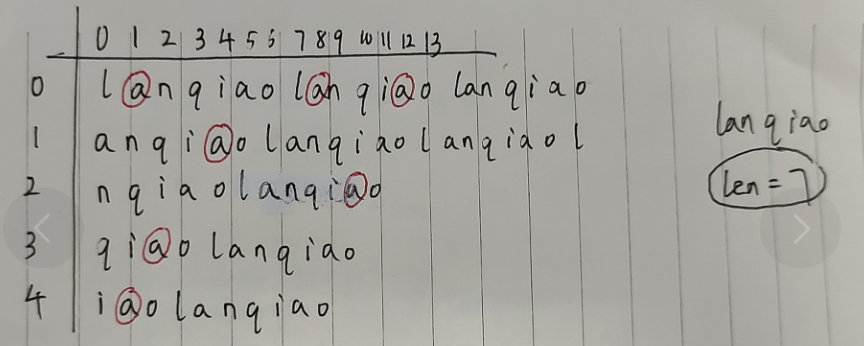 0 1 2 3 4 5 6 7 8 9 10 11 12 13
0 l a n q i a o l a n q i a o l a n q i a o
1 a n q i a o l a n q i a o l a n q i a o l
2 n q i a o l a n q i a o
3 q i a o l a n q i a o
4 i a o l a n q i a o
lanqiao
len=7